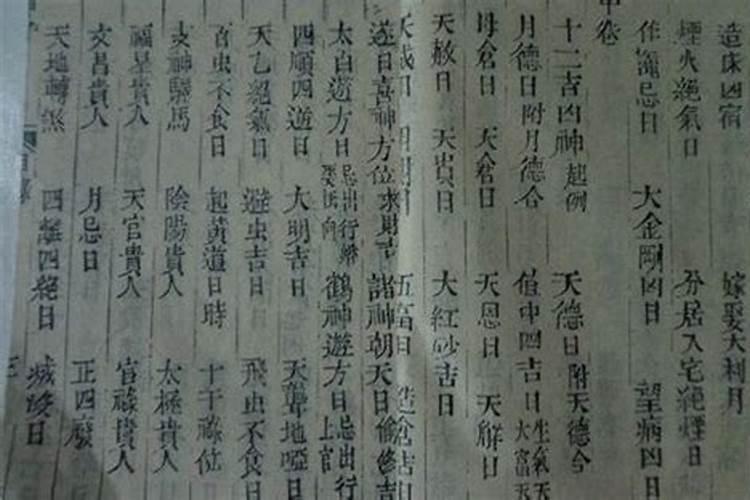 造床凶宿 嫁娶大利月
煙火絶氣日 分居入宅絶煙日
作竈忌日 大金剛凶日 望病凶日
中卷
十二吉凶神起例 天德日附天德合
月德日附月德合 值中四吉日生氣天大富天
母倉日 天倉日 天恩日 天解日
天赦日 天貴日 大紅砂吉日
天成日 五富日 造倉吉日
逐日喜神方位求財吉 諸神朝天日偷修吉
太白遊方日忌出行嫁娶抵向 鶴神遊方日忌出行上官
四順四遊日 大明吉日 天聾地啞日
天乙絕氣日 避虫吉日 飛虫不食日
百虫不食日 起黃道日時 十干祿位
支神驛馬 陰陽貴人 太極貴人
福星貴人 天官貴人 官祿貴人
文昌貴人 月忌日 正四廢
天地轉煞 四離四絕日 滅沒日